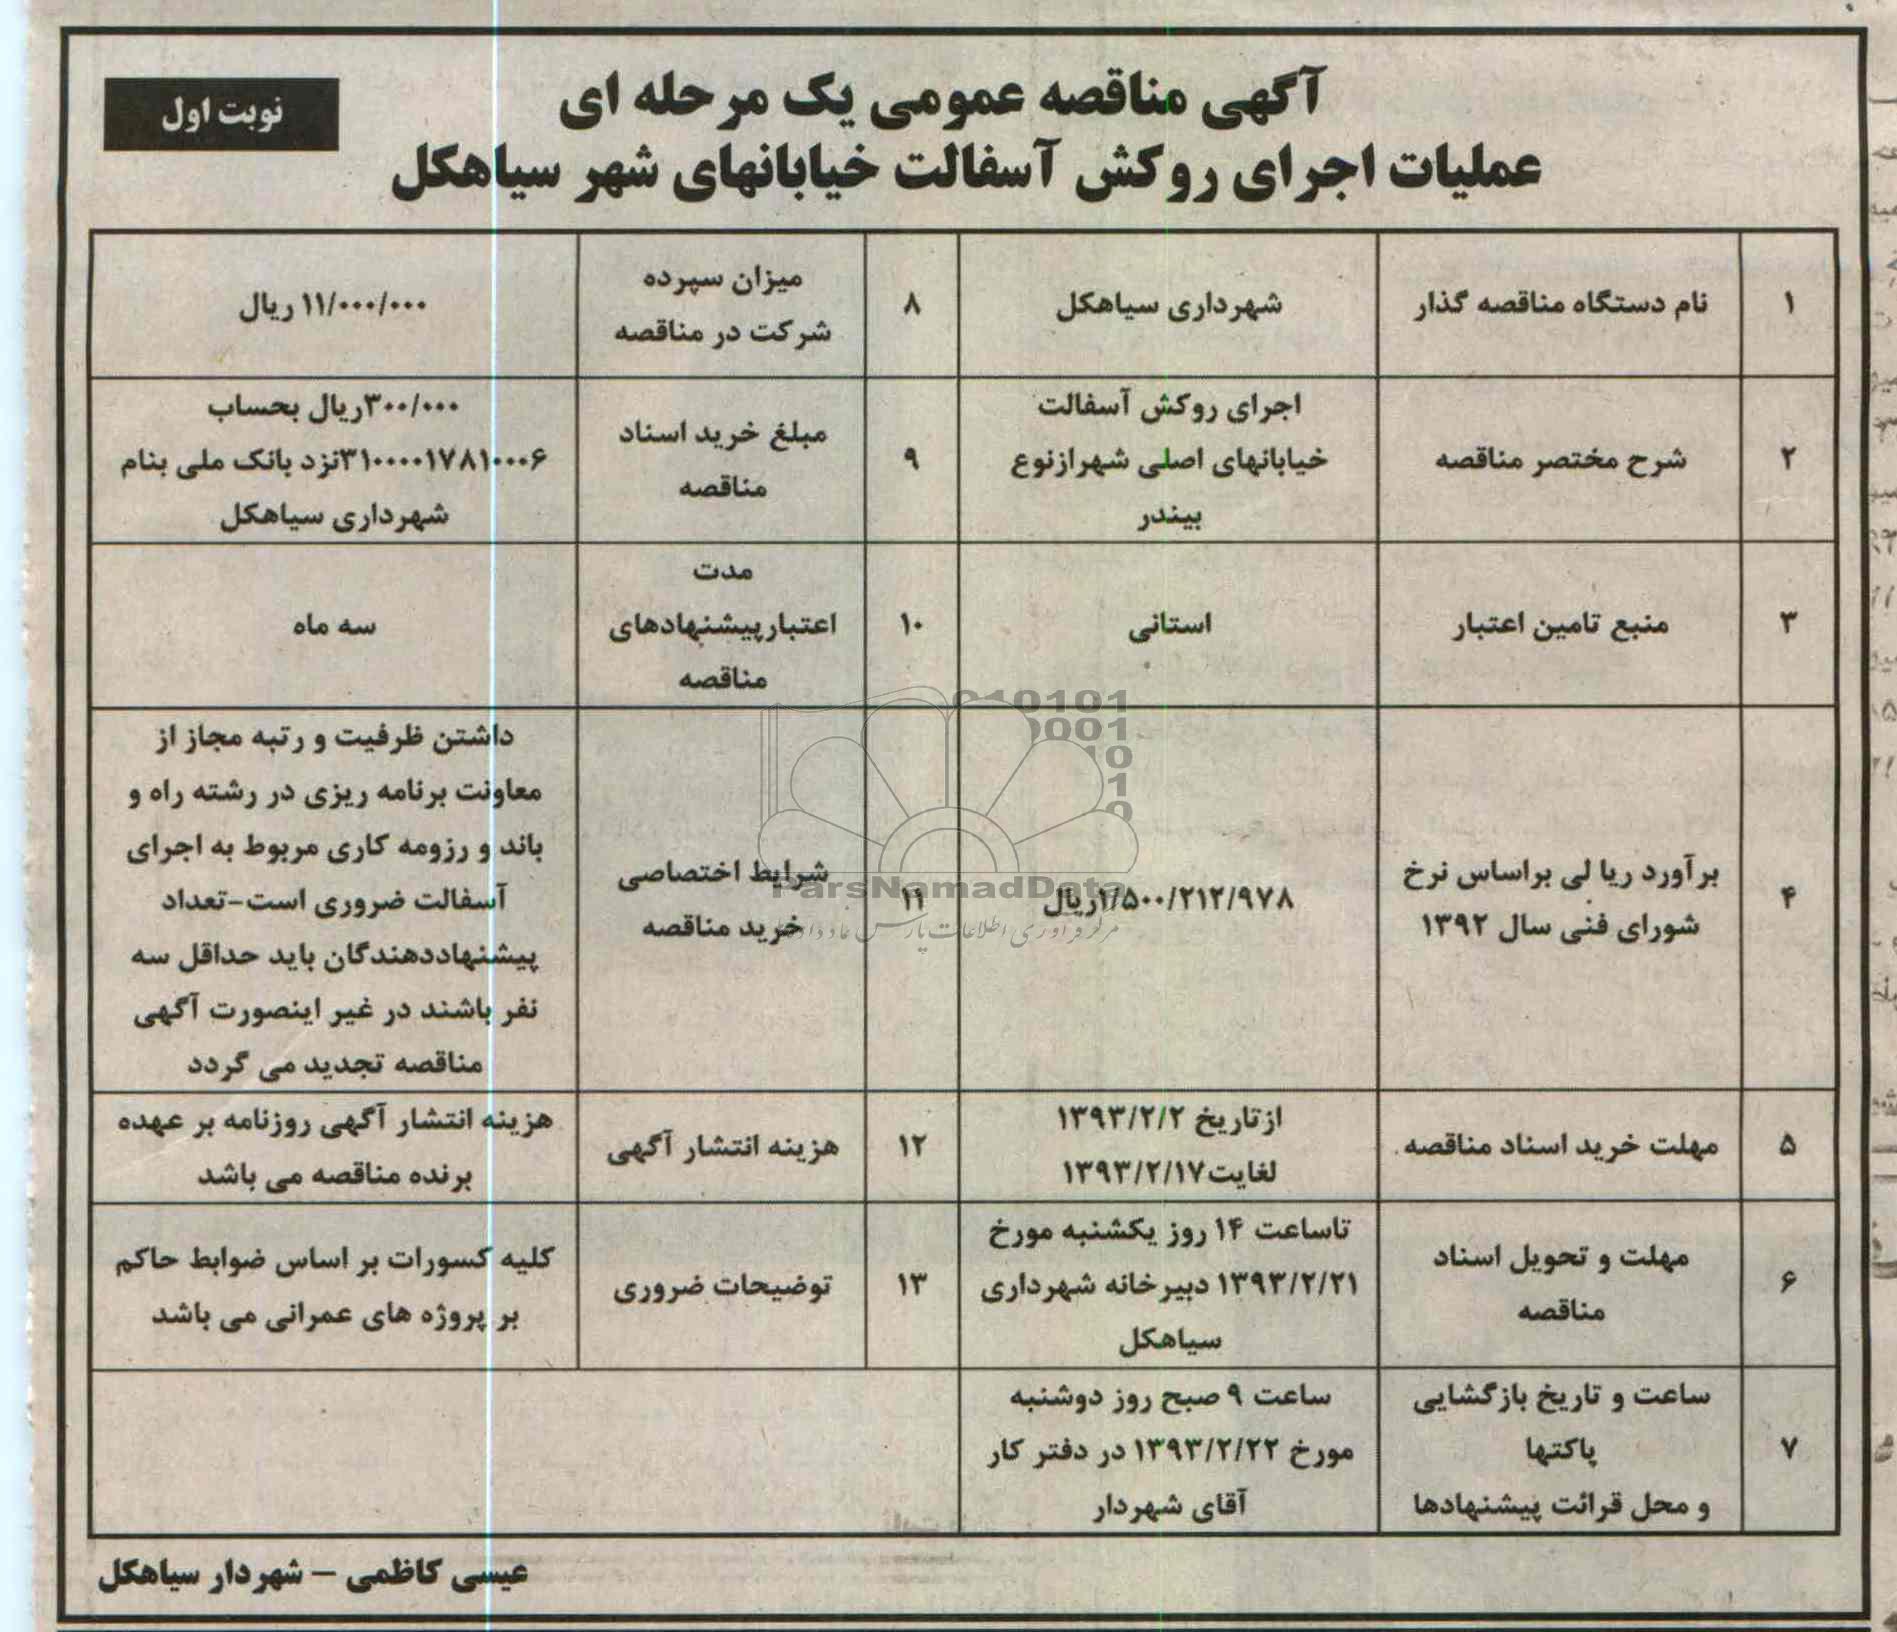 آگهی مناقصه عمومی یک مرحله ای
نوبت اول
عملیات اجرای روکش آسفالت خیابانهای شهر سیاهکل
۱
نام دستگاه مناقصه گذار
شهرداری سیاهکل
۸
میزان سپرده
شرکت در مناقصه
۱۱/۰۰۰/۰۰۰ ریال
۲
شرح مختصر مناقصه
اجرای روکش آسفالت
خیابانهای اصلی شهرازنوع
بیندر
۹
مبلغ خرید اسناد
مناقصه
۳۰۰/۰۰۰ریال بحساب
۳۱۰۰۰۰۱۷۸۱۰۰۰۶نزد بانک ملی بنام
شهرداری سیاهکل
۳
منبع تامین اعتبار
استانی
۱۰
مدت
اعتبارپیشنهادهای
مناقصه
سه ماه
۴
برآورد ریا لی براساس نرخ
شورای فنی سال ۱۳۹۲
۱/۵۰۰/۲۱۲/۹۷۸ریال
۱۱
شرایط اختصاصی
خرید مناقصه
داشتن ظرفیت و رتبه مجاز از
معاونت برنامه ریزی در رشته راه و
باند و رزومه کاری مربوط به اجرای
آسفالت ضروری است-تعداد
پیشنهاددهندگان باید حداقل سه
نفر باشند در غیر اینصورت آگهی
مناقصه تجدید می گردد
۵
مهلت خرید اسناد مناقصه
ازتاریخ ۱۳۹۳/۲/۲
لغایت۱۳۹۳/۲/۱۷
۱۲
هزینه انتشار آگهی
هزینه انتشار آگهی روزنامه بر عهده
برنده مناقصه می باشد
۶
مهلت و تحویل اسناد
مناقصه
تاساعت ۱۴ روز یکشنبه مورخ
۱۳۹۳/۲/۲۱ دبیرخانه شهرداری
سیاهکل
۱۳
توضیحات ضروری
کلیه کسورات بر اساس ضوابط حاکم
بر پروژه های عمرانی می باشد
۷
ساعت و تاریخ بازگشایی
پاکتها
و محل قرائت پیشنهادها
ساعت ۹ صبح روز دوشنبه
مورخ ۱۳۹۳/۲/۲۲ در دفتر کار
آقای شهردار
عیسی کاظمی – شهردار سیاهکل
ParsNamadData